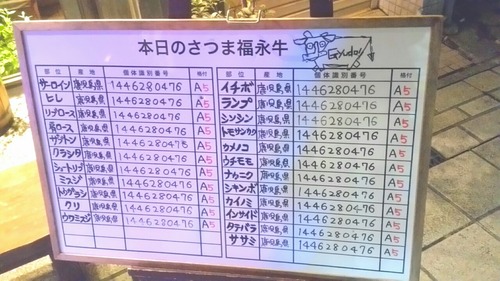 本日のさつま福永牛
Gyudo!
部位 産地 個体識別番号 格付
サーロイン 鹿児島県 1446280476 A5
ヒレ 鹿児島県 1446280476 A5
リブロース 鹿児島県 1446280476 A5
肩ロース 鹿児島県 1446280476 A5
ザブトン 鹿児島県 1446280476 A5
クラシタ 鹿児島県 1446280476 A5
ショートリブ 鹿児島県 1446280476 A5
ミスジ 鹿児島県 1446280476 A5
トウガラシ 鹿児島県 1446280476 A5
クリ 鹿児島県 1446280476 A5
ウワミスジ 鹿児島県 1446280476 A5
部位 産地 個体識別番号 格付
イチボ 鹿児島県 1446280476 A5
ランプ 鹿児島県 1446280476 A5
シンシン 鹿児島県 1446280476 A5
トモサンカク 鹿児島県 1446280476 A5
カメノコ 鹿児島県 1446280476 A5
ウチモモ 鹿児島県 1446280476 A5
ナカニク 鹿児島県 1446280476 A5
シキンボ 鹿児島県 1446280476 A5
カイノミ 鹿児島県 1446280476 A5
インサイド 鹿児島県 1446280476 A5
タテバラ 鹿児島県 1446280476 A5
ササミ 鹿児島県 1446280476 A5